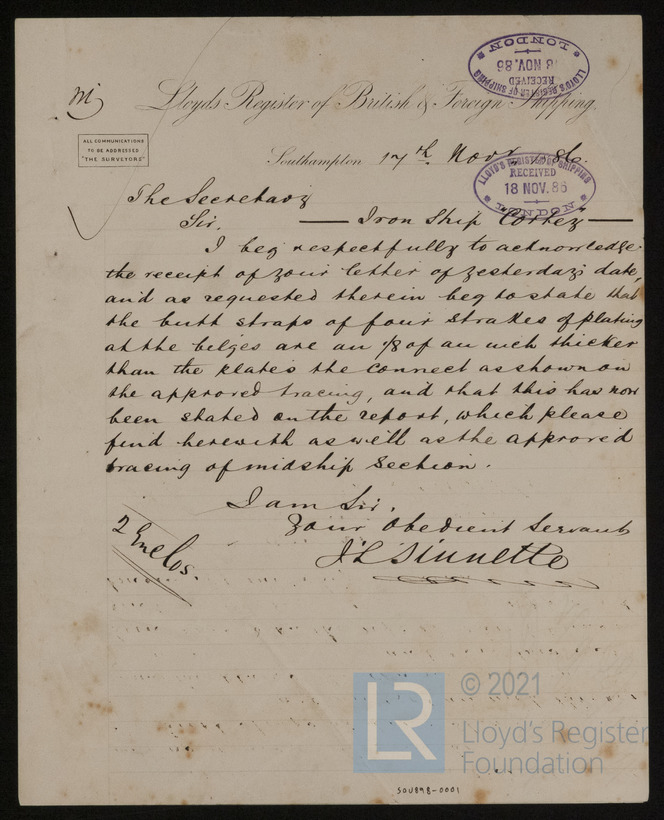 LLOYD'S REGISTER OF SHIPPING
RECEIVED
18 NOV. 86
LONDON
Lloyds Register of British & Foreign Shipping.
ALL COMMUNICATIONS
TO BE ADDRESSED
"THE SURVEYORS"
Southampton 17th Novr 1886.
LLOYD'S REGISTER OF SHIPPING
RECEIVED
18 NOV. 86
LONDON
The Secretary
Sir. — Iron Ship "Cortez" —
I beg respectfully to acknowledge
the receipt of your letter of yesterdays date,
and as requested therein beg to state that
the butt straps of four strakes of plating
at the belges are an 1/8 of an inch thicker
than the plates the connect as shown on
the approved tracing, and that this has now
been stated on the report, which please
find herewith as well as the approved
tracing of midship section.
I am Sir.
Your Obedient Servant
J L Sinnette
2 Enclos.
LR © 2021
Lloyd's Register
Foundation
SOU898-0001